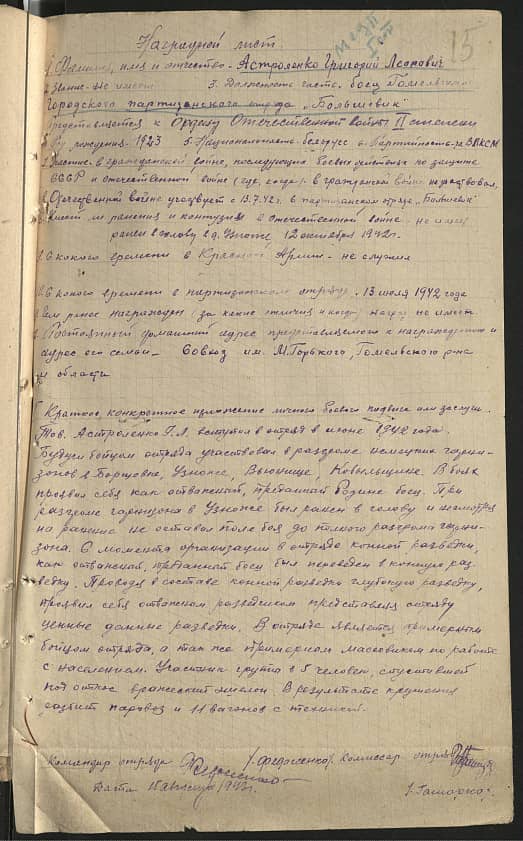 15
Наградной лист
1. Фамилия, имя и отчество - Астроленко Григорий Леонович
2. Звание - не имеет 3. Должность, часть - боец Гомельского
Городского партизанского отряда „Большевик"
Представляется к Ордену Отечественной войны II степени
4. Год рождения - 1923 5. Национальность - беларус 6. Партийность - чл. ВЛКСМ
Участие в гражданской войне, последующих боевых действиях по защите
СССР и отечественной войне (где, когда) - в гражданской войне не участвовал,
в Отечественной войне участвует с 13.7.42 г. в партизанском отряде „Большевик"
Имеет ли ранения и контузии в отечественной войне - не имеет
ранен в голову в д. Узноже, 12 октября 1942 г.
С какого времени в Красной Армии - не служил
С какого времени в партизанском отряде - 13 июля 1942 года
Чем ранее награжден (за какие отличия и когда) наград не имеет
Постоянный домашний адрес представляемого к награждению и
адрес его семьи - Совхоз им. М. Горького, Гомельского р-на
и области
Краткое, конкретное изложение личного боевого подвига или заслуг.
Тов. Астроленко Г.Л. вступил в отряд в июне 1942 года.
Будучи бойцом отряда участвовал в разгроме немецких гарни-
зонов в Борщовке, Узноже, Вьюнище, Ковыльщине. В боях
проявил себя как отважный, преданный Родине боец. При
разгроме гарнизона в Узноже был ранен в голову и несмотря
на ранение не оставил поле боя до полного разгрома гарни-
зона. С момента организации в отряде конной разведки,
как отважный, преданный боец был переведен в конную раз-
ведку. Проводя в составе конной разведки глубокую разведку,
проявил себя отважным разведчиком представляя отряду
ценные данные разведки. В отряде является примерным
бойцом отряда, а так же примерным массовиком по работе
с населением. Участник группы в 5 человек, спустившей
под откос вражеский эшелон. В результате крушения
разбит паровоз и 11 вагонов с техникой.
Командир отряда /Федосенко/ Комиссар отряда
Дата 15 августа 1943 г.